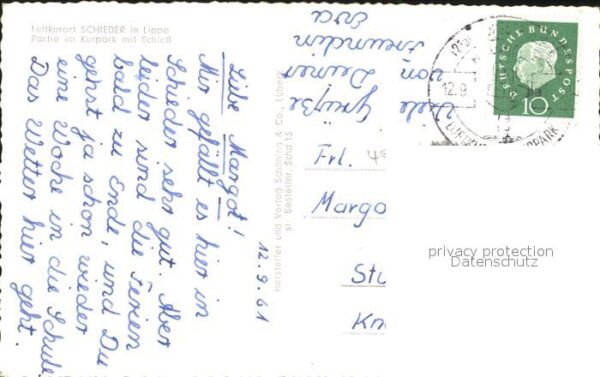 Luftkurort SCHIEDER in Lippe
Partie im Kurpark mit Schloß
12.9.61
Liebe Margot!
Mir gefällt es hier in
Schieder sehr gut. Aber
leider sind die Ferien
bald zu Ende, und Du
gehst ja schon wieder
eine Woche in die Schule.
Das Wetter hier geht.
Viele Grüße
von Deiner
Freundin
Eva
Hersteller und Verlag Schöning & Co., Lübeck
Bestellnr. Schd 15
DEUTSCHE BUNDESPOST
10
12.9
Frl.
Margo
Stu
Kn
privacy protection
Datenschutz